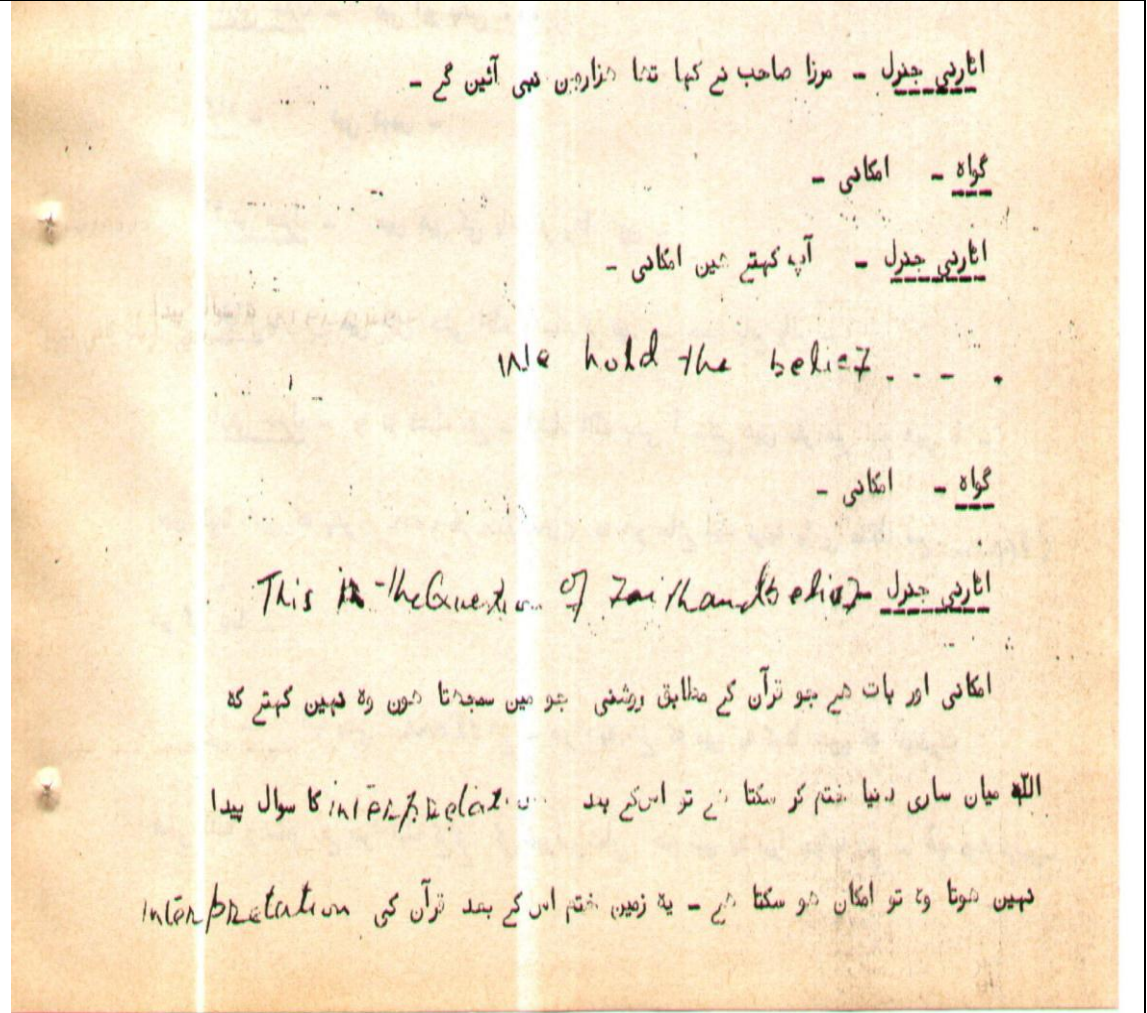 اٹارنی جنرل - مرزا صاحب نے کہا تھا ہزارہن نبی آئین گے -
گواہ - امکانی -
اٹارنی جنرل - آپ کہتے ہین امکانی -
We hold the belief - - - .
گواہ - امکانی -
اٹارنی جنرل - This is the Question of Faith and belief
امکانی اور بات ہے جو قرآن کے مطابق روشنی جو مین سمجھتا ہون وہ نہین کہتے کہ
اللہ میان ساری دنیا ختم کر سکتا ہے تو اس کے بعد interpretation کا سوال پیدا
نہین ہوتا وہ تو امکان ہو سکتا ہے - یہ زمین ختم اس کے بعد قرآن کی interpretation